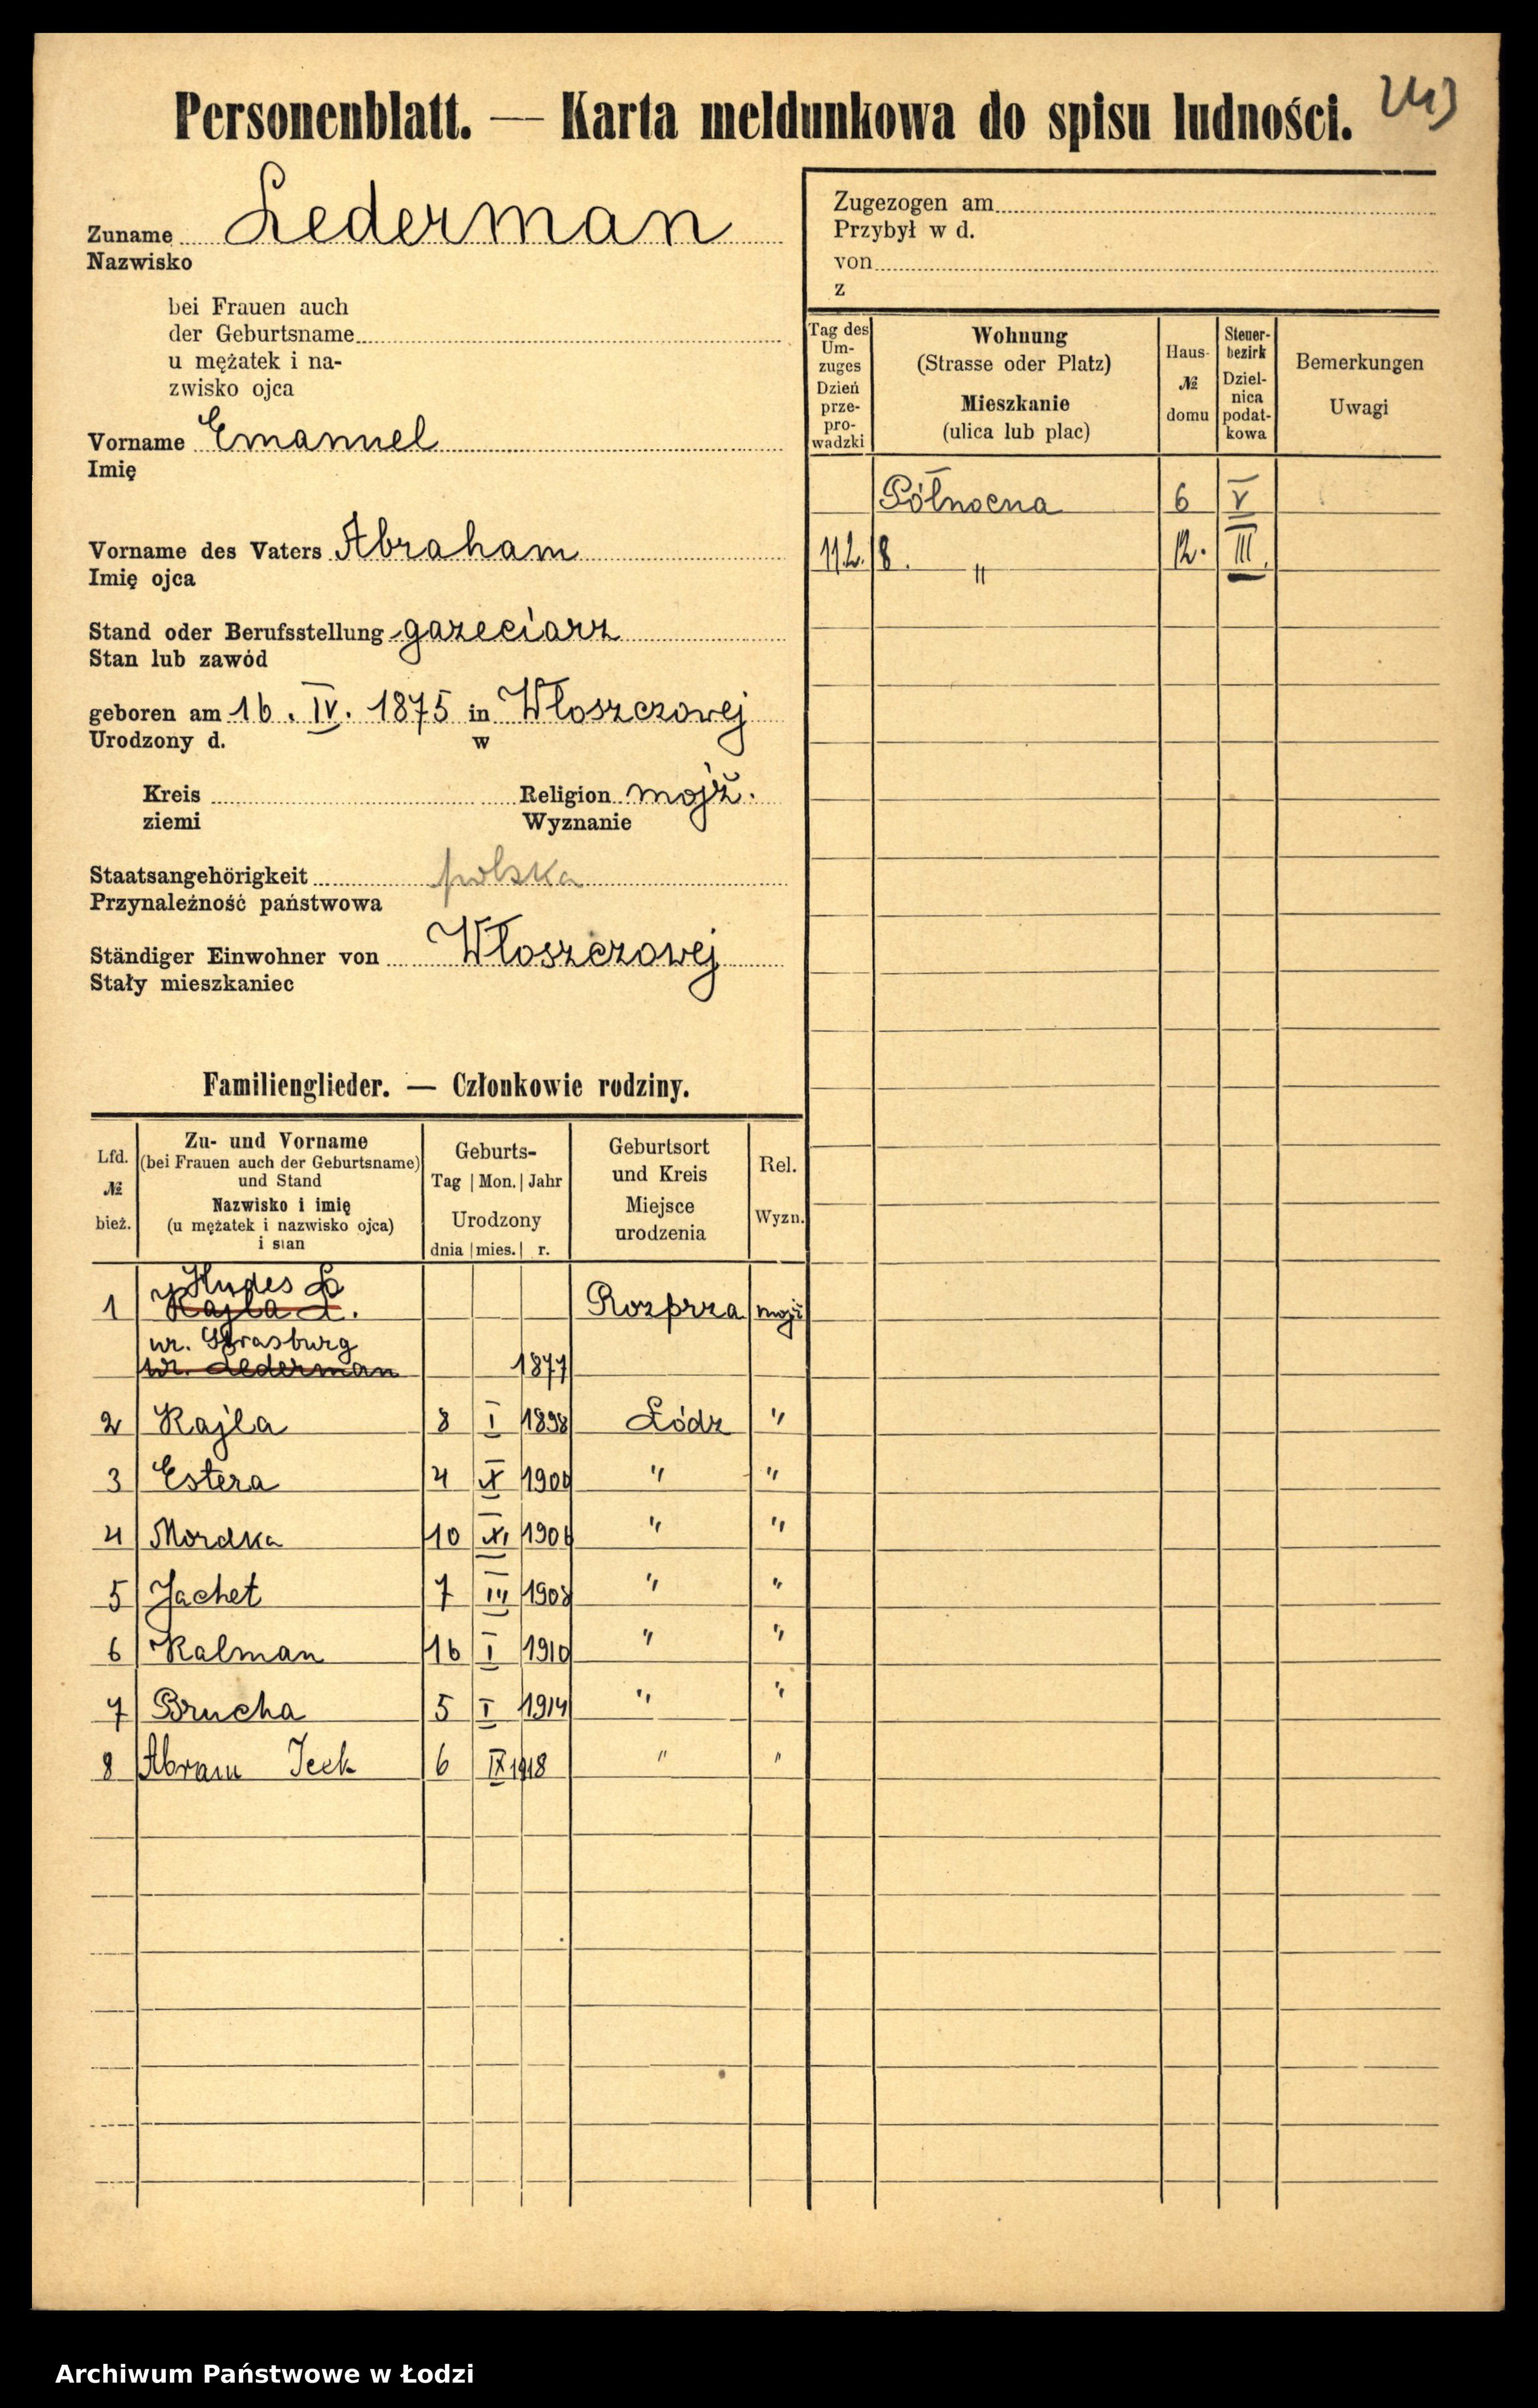 Personenblatt. — Karta meldunkowa do spisu ludności.
Zuname Lederman
Nazwisko
bei Frauen auch
der Geburtsname
u mężatek i na-
zwisko ojca
Vorname Emanuel
Imię
Vorname des Vaters Abraham
Imię ojca
Stand oder Berufsstellung gazeciarz
Stan lub zawód
geboren am 16. IV. 1875 in Włoszczowej
Urodzony d. w
Kreis Religion mojż.
ziemi Wyznanie
Staatsangehörigkeit polska
Przynależność państwowa
Ständiger Einwohner von Włoszczowej
Stały mieszkaniec
Zugezogen am
Przybył w d.
von
z
Tag des Um-zuges Dzień prze-pro-wadzki
Wohnung
(Strasse oder Platz)
Mieszkanie
(ulica lub plac)
Haus- № domu
Steuer-bezirk Dziel-nica podat-kowa
Bemerkungen
Uwagi
Północna 6 V
" 12. III
Familienglieder. — Członkowie rodziny.
Lfd. № bież.
Zu- und Vorname
(bei Frauen auch der Geburtsname)
und Stand
Nazwisko i imię
(u mężatek i nazwisko ojca)
i stan
Geburts-
Tag | Mon. | Jahr
Urodzony
dnia | mies. | r.
Geburtsort
und Kreis
Miejsce
urodzenia
Rel.
Wyzn.
1 Rajla L. Rozprza mojż
ur. Strasburg
ur. Lederman 1877
2 Rajla 8 I 1898 Łódz "
3 Estera 4 X 1900 " "
4 Mordka 10 XI 1904 " "
5 Jachet 7 III 1908 " "
6 Kalman 16 I 1910 " "
7 Brucha 5 I 1914 " "
8 Abram Icek 6 IX 1918 " "
Archiwum Państwowe w Łodzi